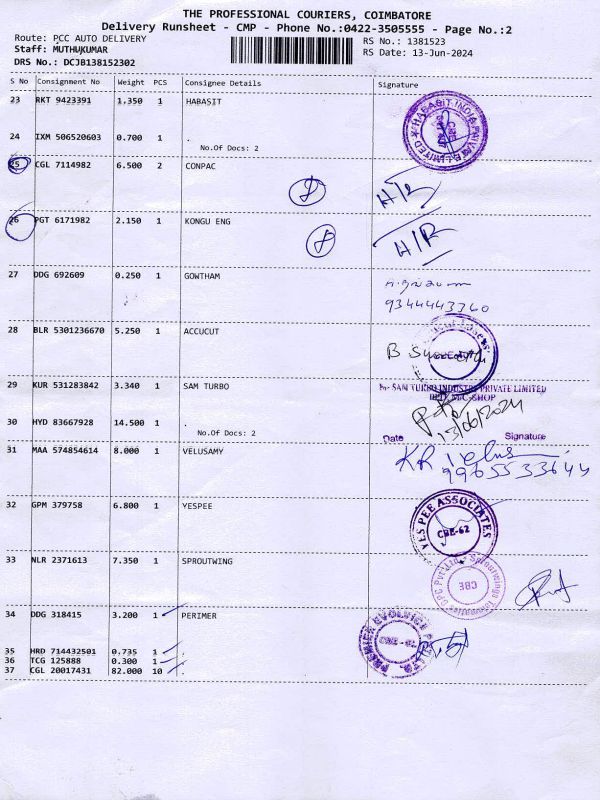 THE PROFESSIONAL COURIERS, COIMBATORE
Delivery Runsheet - CMP - Phone No.:0422-3505555 - Page No.:2
Route: PCC AUTO DELIVERY
RS No.: 1381523
Staff: MUTHUKUMAR
RS Date: 13-Jun-2024
DRS No.: DCJB138152302
S No Consignment No Weight PCS Consignee Details Signature
23 RKT 9423391 1.350 1 HABASIT
HABASIT INDIA PRIVATE LIMITED
24 IXM 506520603 0.700 1 .
No.Of Docs: 2
25 CGL 7114982 6.500 2 CONPAC
H/R
26 PGT 6171982 2.150 1 KONGU ENG
H/R
27 DDG 692609 0.250 1 GOWTHAM
9344443760
28 BLR 5301236670 5.250 1 ACCUCUT
B
29 KUR 531283842 3.340 1 SAM TURBO
For SAM TURBO INDUSTRY PRIVATE LIMITED
13/06/2024
30 HYD 83667928 14.500 1 .
No.Of Docs: 2
Date Signature
31 MAA 574854614 8.000 1 VELUSAMY
KR
9965533644
32 GPM 379758 6.800 1 YESPEE
YES PEE ASSOCIATES
CBE-62
33 NLR 2371613 7.350 1 SPROUTWING
CBE
34 DDG 318415 3.200 1 PERIMER
35 HRD 714432501 0.735 1 .
36 TCG 125888 0.300 1 .
37 CGL 20017431 82.000 10 .